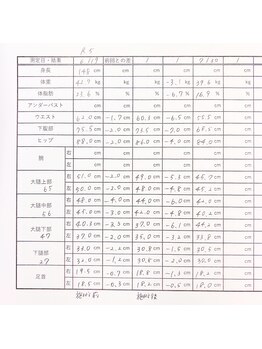 測定日・結果 前回との差 / / 7/30 /
身長 148 cm cm cm cm cm cm
体重 42.7 kg kg kg -3.1 kg 39.6 kg kg
体脂肪 23.6 % % % -6.7 % 16.9 % %
アンダーバスト cm cm cm cm cm cm
ウエスト 62.0 cm -1.7 cm 60.3 cm -6.5 cm 55.5 cm cm
下腹部 75.5 cm -2.0 cm 73.5 cm -7.0 cm 68.5 cm cm
ヒップ 88.0 cm -2.0 cm 86.0 cm -4.0 cm 84.0 cm cm
腕 右 cm cm cm cm cm cm
左 cm cm cm cm cm cm
大腿上部 右 51.0 cm -2.0 cm 49.0 cm cm cm cm
65 左 50.0 cm -2.0 cm 48.0 cm -4.8 cm 45.2 cm cm
大腿中部 右 48.0 cm -4.0 cm 44.0 cm cm cm cm
56 左 47.0 cm -2.0 cm 45.0 cm cm cm cm
大腿下部 右 40.3 cm -3.3 cm 37.0 cm cm cm cm
47 左 37.0 cm -2.0 cm 35.0 cm -3.2 cm 33.8 cm cm
下腿部 右 33.0 cm -2.2 cm 30.8 cm cm cm cm
27 左 32.0 cm -1.2 cm 30.8 cm cm cm cm
足首 右 19.5 cm -0.7 cm 18.8 cm -1.3 cm 18.2 cm cm
左 18.5 cm -0.3 cm 18.2 cm cm cm cm
施術前 施術後